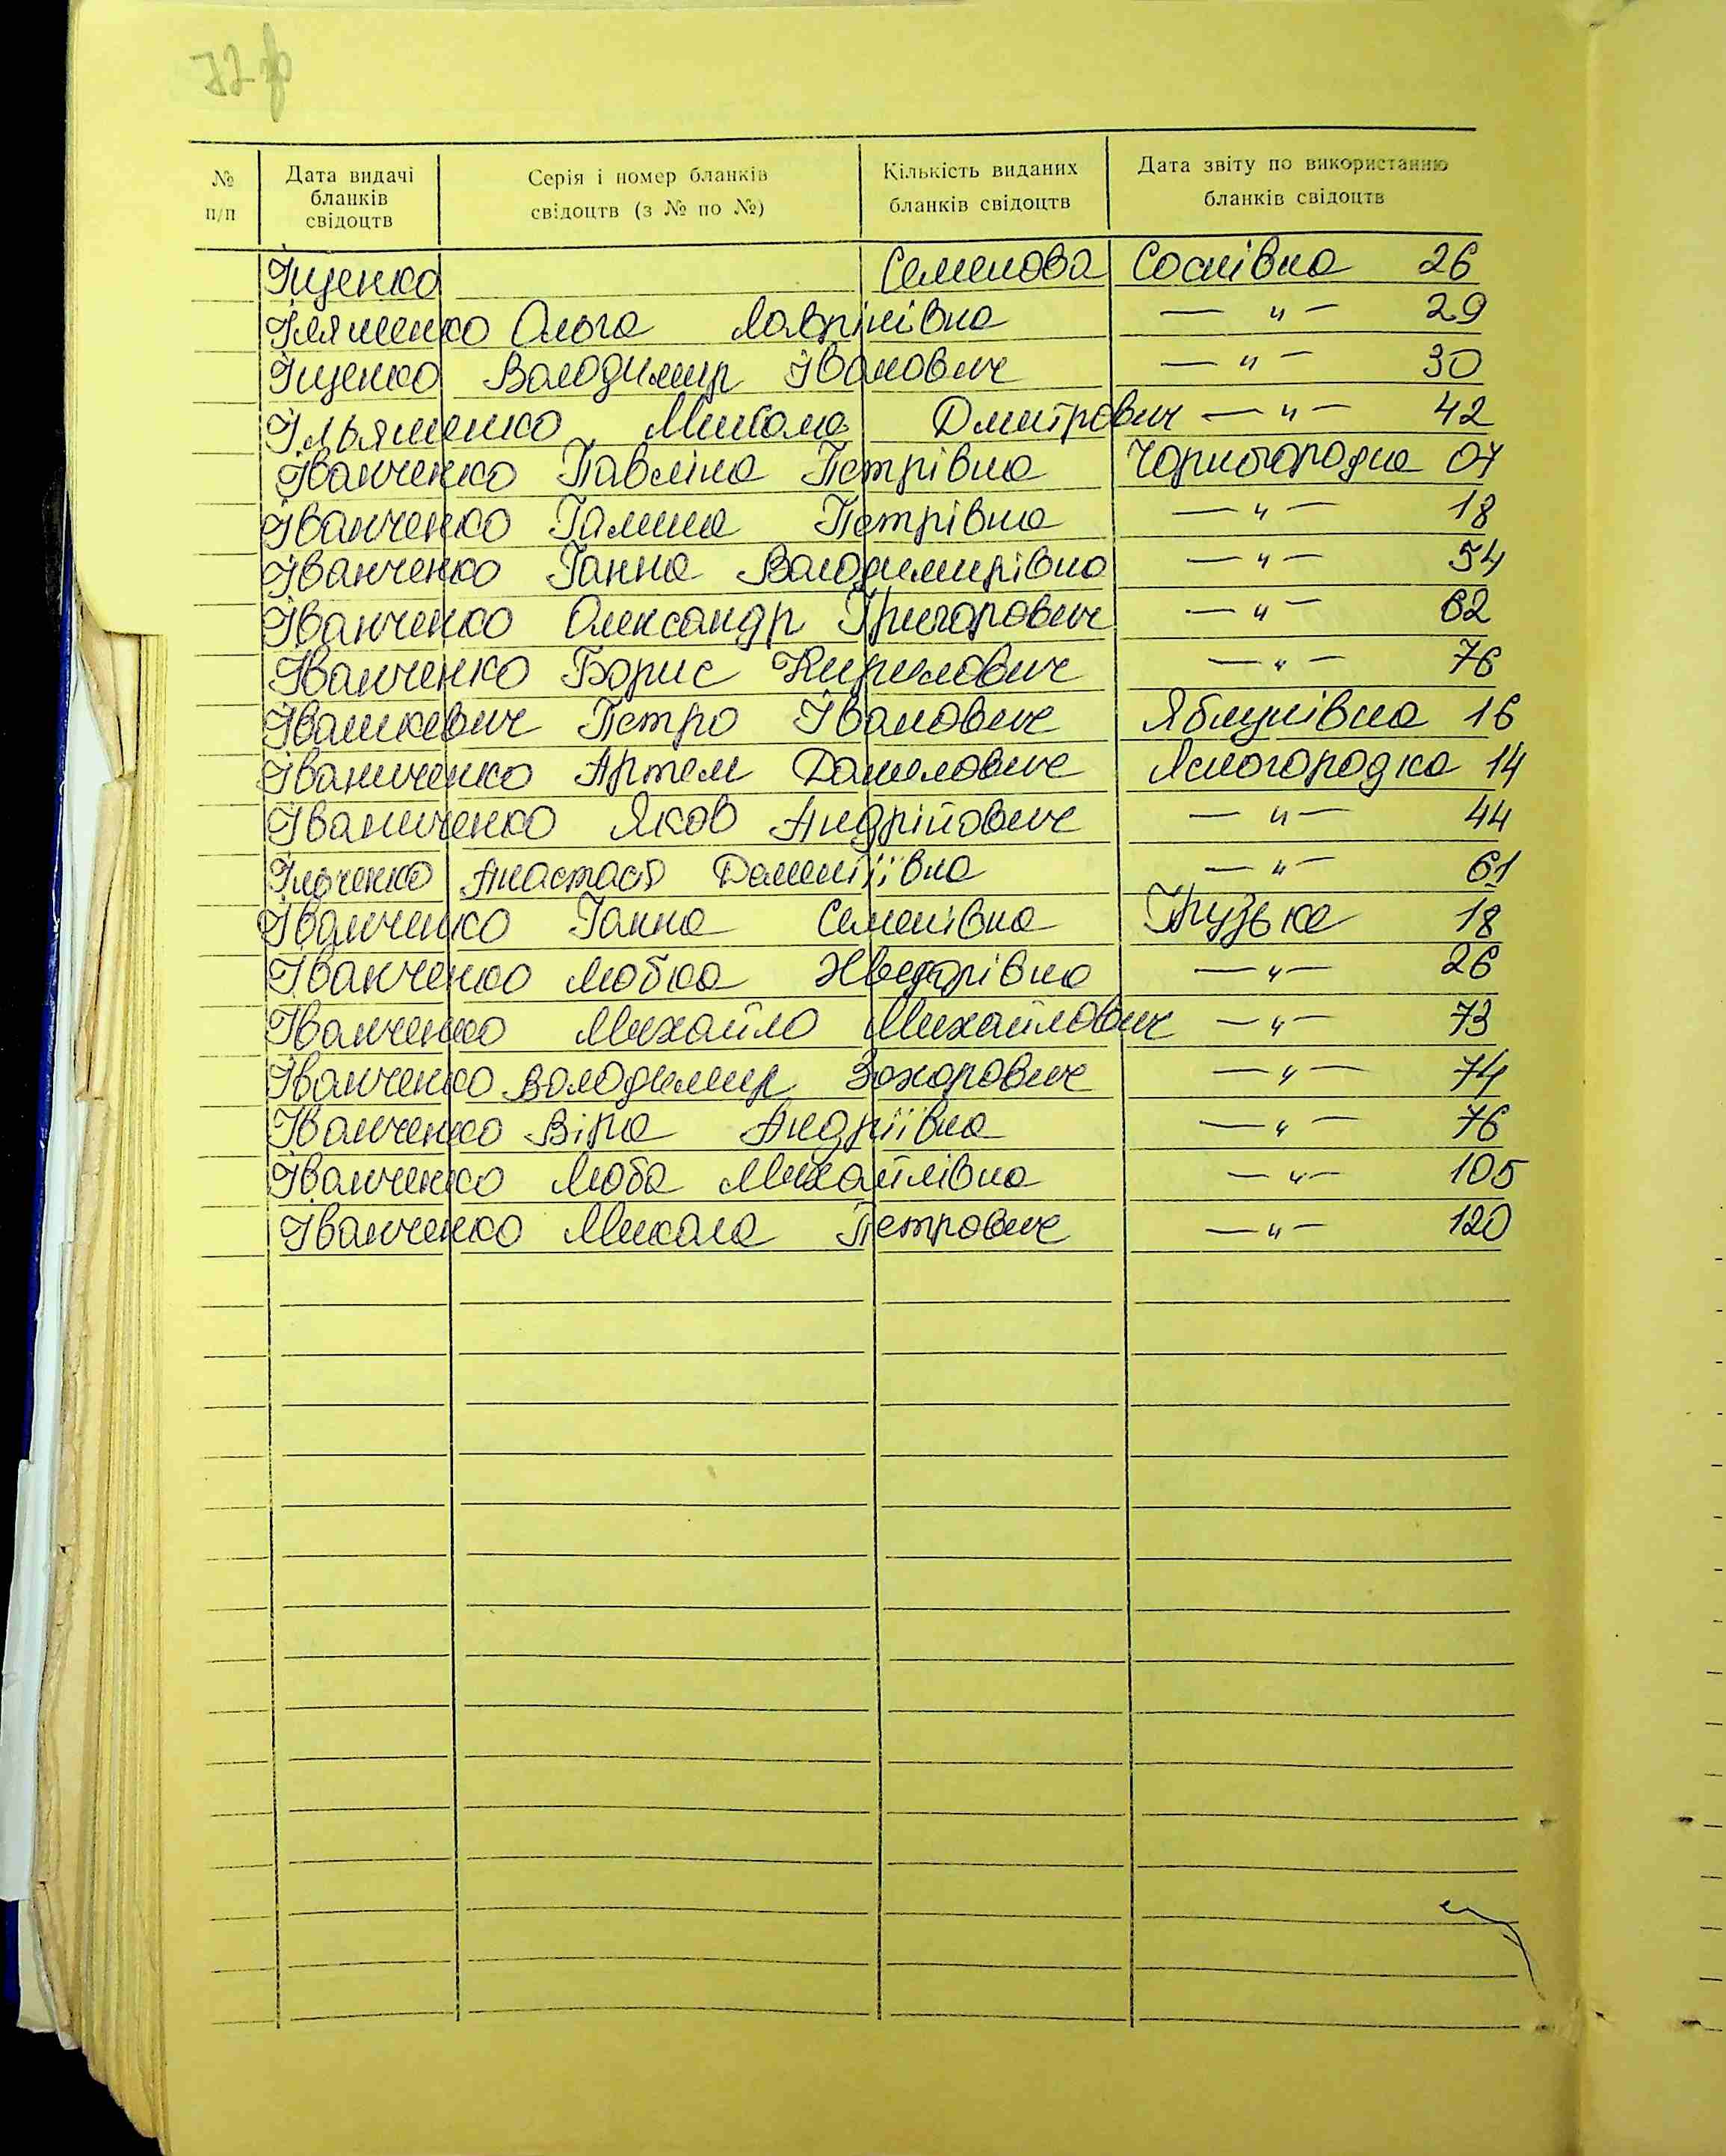 72 зв
№ п/п | Дата видачі бланків свідоцтв | Серія і номер бланків свідоцтв (з № по №) | Кількість виданих бланків свідоцтв | Дата звіту по використанню бланків свідоцтв
Іщенко Семенова Соснівка 26
Ілляшенко Ольга Лаврінівна — „ — 29
Іщенко Володимир Іванович — „ — 30
Ільяшенко Микола Дмитрович — „ — 42
Іванченко Павліна Петрівна Чорногородка 07
Іванченко Галина Петрівна — „ — 18
Іванченко Ганна Володимирівна — „ — 54
Іванченко Олександр Григорович — „ — 62
Іванченко Борис Кирилович — „ — 76
Івашкевич Петро Іванович Яблунівка 16
Іваниченко Артем Данилович Ясногородка 14
Іваниченко Яков Андрійович — „ — 44
Ільченко Анастасія — „ — 61
Іванченко Ганна Семенівна Грузьке 18
Іванченко Любка — „ — 26
Іванченко Михайло Михайлович — „ — 73
Іванченко Володимир Захарович — „ — 74
Іванченко Віра Андріївна — „ — 76
Іванченко Люба Михайлівна — „ — 105
Іванченко Микола Петрович — „ — 120